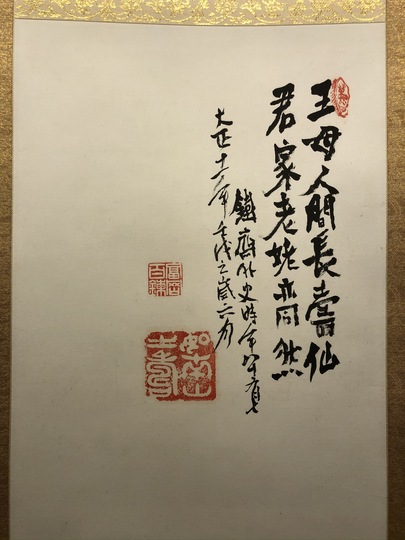 王母人間長壽仙
君家老姥亦同然
鐵齋外史時年八十有七
大正十一年壬戌之歳六月
富岡
百錬